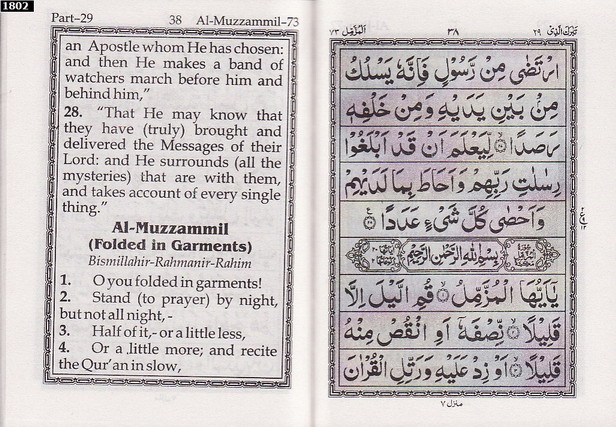 1802
Part–29 38 Al-Muzzammil–73
an Apostle whom He has chosen:
and then He makes a band of
watchers march before him and
behind him,”
28. “That He may know that
they have (truly) brought and
delivered the Messages of their
Lord: and He surrounds (all the
mysteries) that are with them,
and takes account of every single
thing.”
Al-Muzzammil
(Folded in Garments)
Bismillahir-Rahmanir-Rahim
1. O you folded in garments!
2. Stand (to prayer) by night,
but not all night, -
3. Half of it,- or a little less,
4. Or a little more; and recite
the Qur’an in slow,
تبٰرك الذی ٢٩ ٣٨ المزّمّل ٧٣
ارْتَضٰى مِنْ رَّسُوْلٍ فَاِنَّهٗ يَسْلُكُ
مِنْۢ بَيْنِ يَدَيْهِ وَمِنْ خَلْفِهٖ
رَصَدًا ۝ لِّيَعْلَمَ اَنْ قَدْ اَبْلَغُوْا
رِسٰلٰتِ رَبِّهِمْ وَاَحَاطَ بِمَا لَدَيْهِمْ
وَاَحْصٰى كُلَّ شَىْءٍ عَدَدًا ۝
بِسْمِ اللهِ الرَّحْمٰنِ الرَّحِيْمِ
يٰۤاَيُّهَا الْمُزَّمِّلُ ۝ قُمِ الَّيْلَ اِلَّا
قَلِيْلًا ۝ نِّصْفَهٗۤ اَوِ انْقُصْ مِنْهُ
قَلِيْلًا ۝ اَوْ زِدْ عَلَيْهِ وَرَتِّلِ الْقُرْاٰنَ
منزل ٧